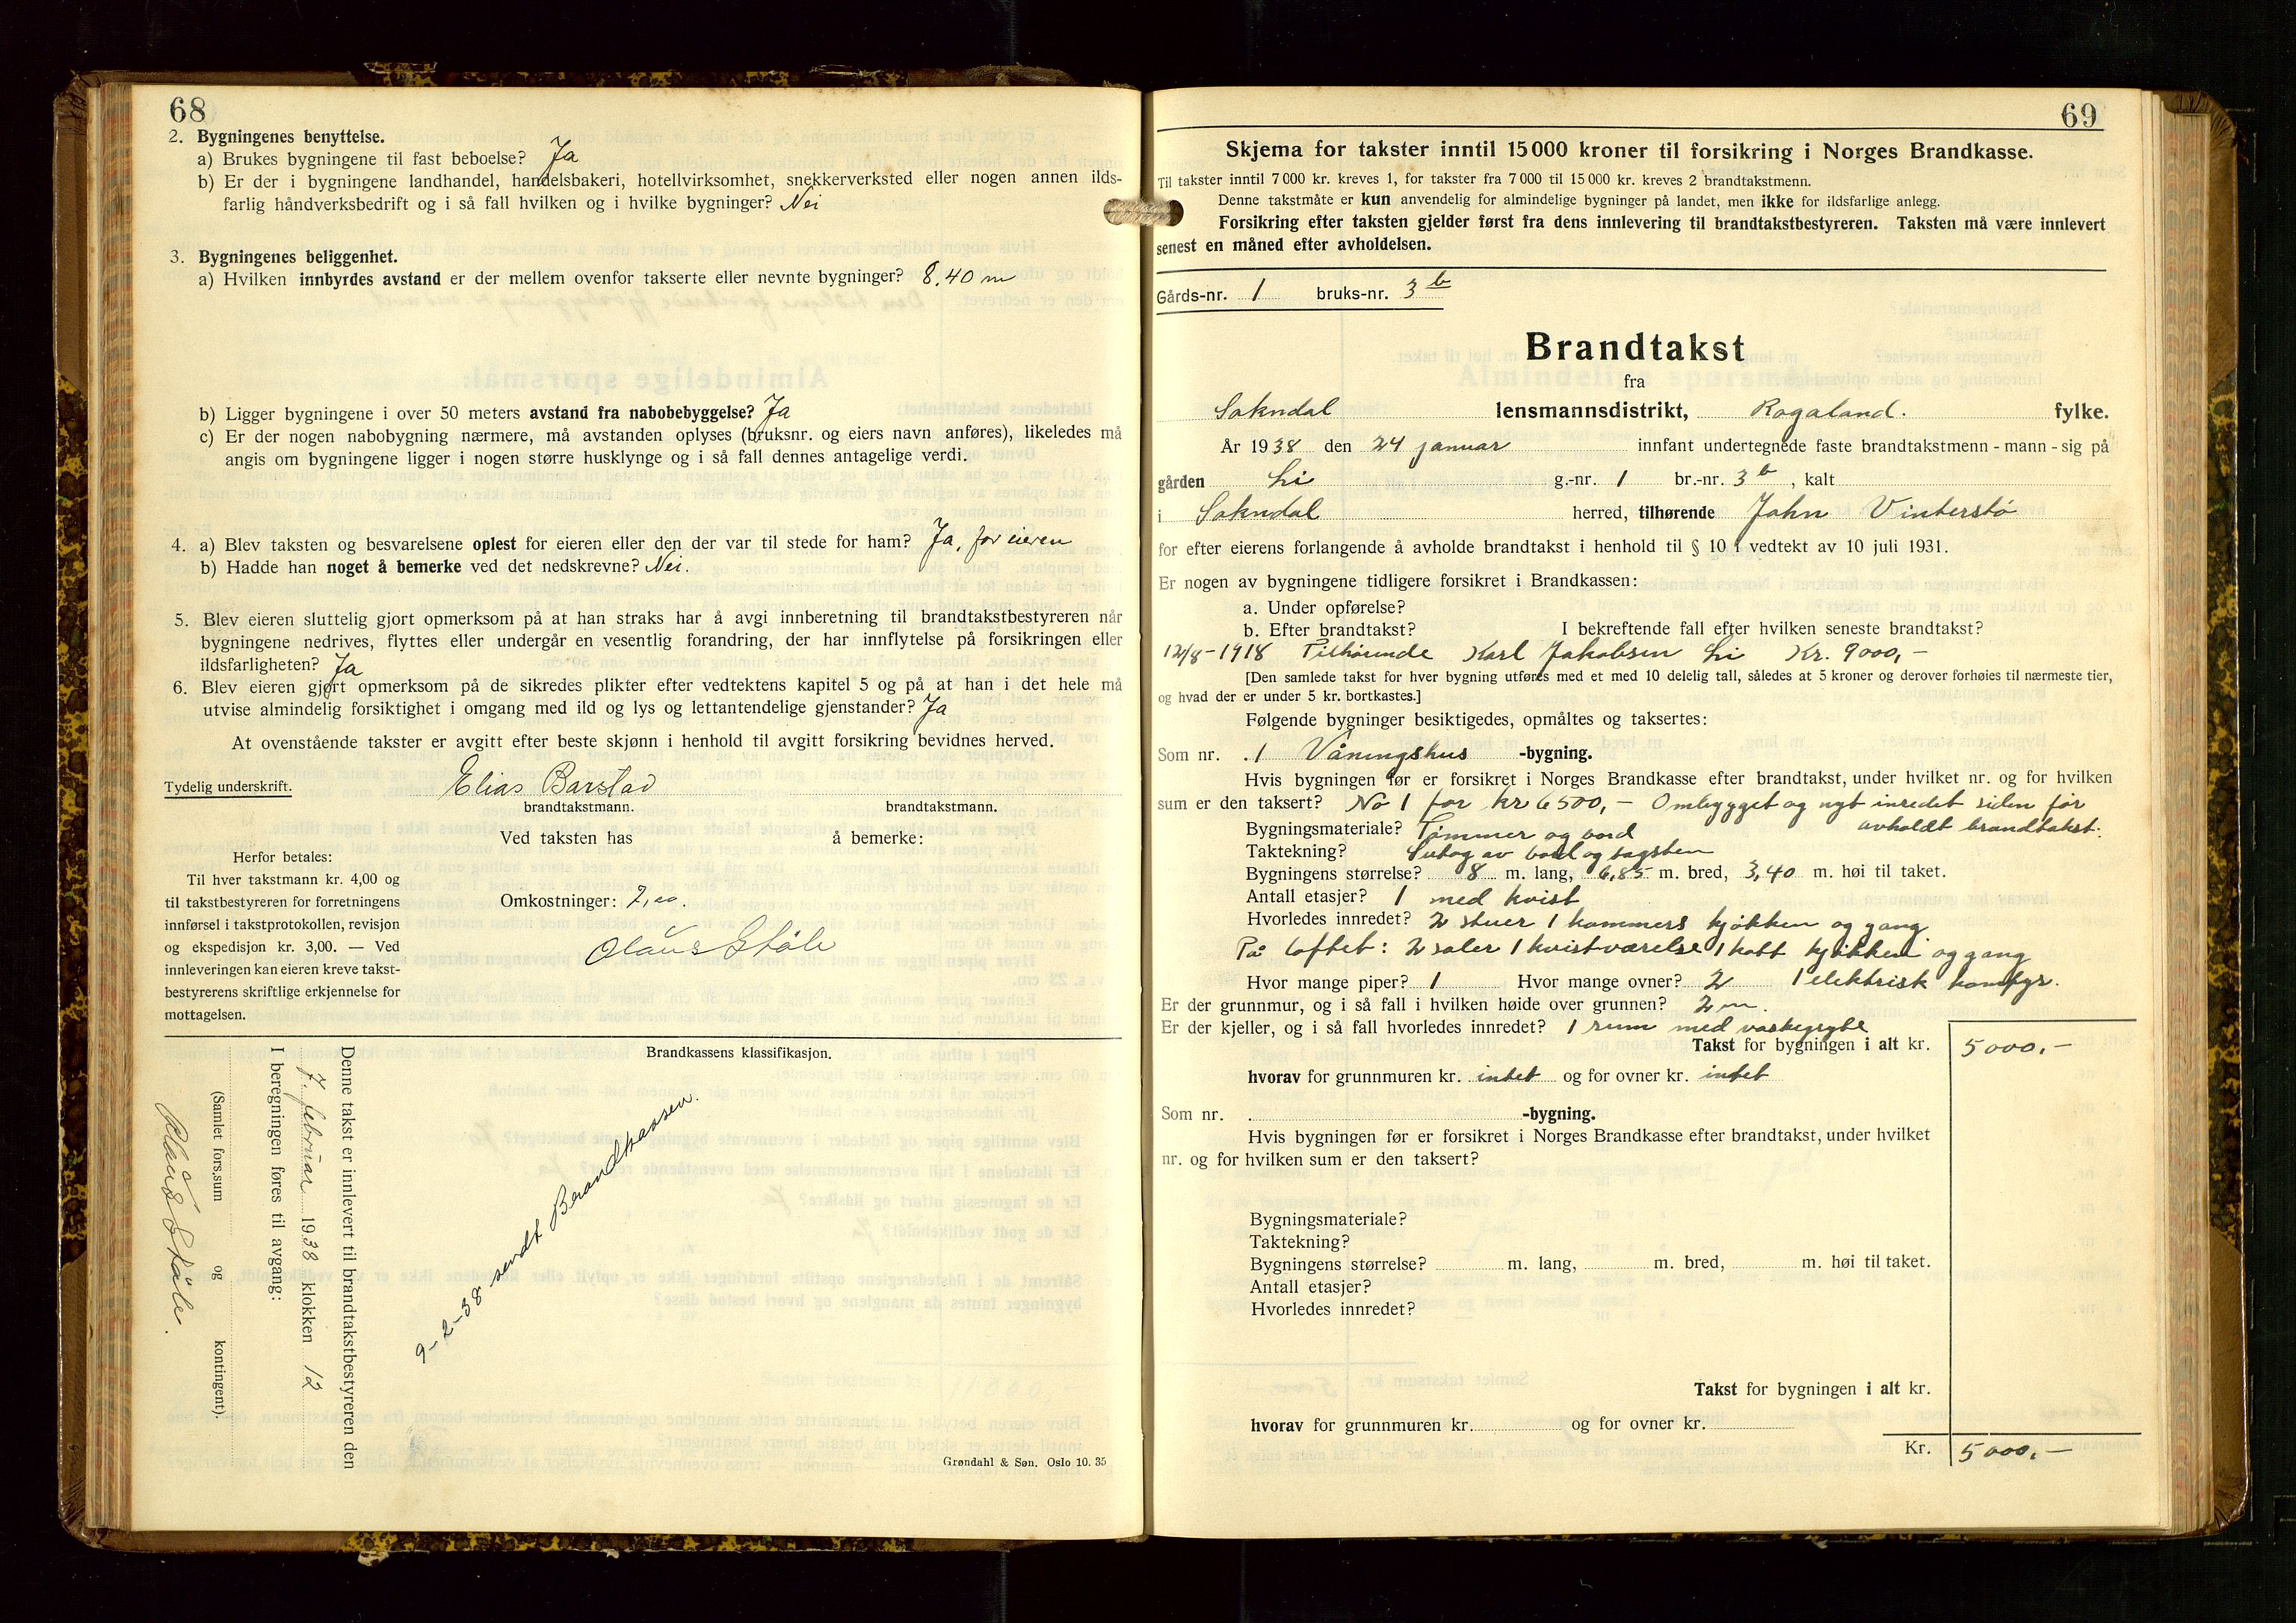 68
2. Bygningenes benyttelse.
a) Brukes bygningene til fast beboelse? Ja
b) Er der i bygningene landhandel, handelsbakeri, hotellvirksomhet, snekkerverksted eller nogen annen ilds-
farlig håndverksbedrift og i så fall hvilken og i hvilke bygninger? Nei
3. Bygningenes beliggenhet.
a) Hvilken innbyrdes avstand er der mellem ovenfor takserte eller nevnte bygninger? 8.40 m
b) Ligger bygningene i over 50 meters avstand fra nabobebyggelse? Ja
c) Er der nogen nabobygning nærmere, må avstanden oplyses (bruksnr. og eiers navn anføres), likeledes må
angis om bygningene ligger i nogen større husklynge og i så fall dennes antagelige verdi.
4. a) Blev taksten og besvarelsene oplest for eieren eller den der var til stede for ham? Ja, for eieren
b) Hadde han noget å bemerke ved det nedskrevne? Nei.
5. Blev eieren sluttelig gjort opmerksom på at han straks har å avgi innberetning til brandtakstbestyreren når
bygningene nedrives, flyttes eller undergår en vesentlig forandring, der har innflytelse på forsikringen eller
ildsfarligheten? Ja
6. Blev eieren gjort opmerksom på de sikredes plikter efter vedtektens kapitel 5 og på at han i det hele må
utvise almindelig forsiktighet i omgang med ild og lys og lettantendelige gjenstander? Ja
At ovenstående takster er avgitt efter beste skjønn i henhold til avgitt forsikring bevidnes herved.
Tydelig underskrift. Elias Barstad
brandtakstmann. brandtakstmann.
Ved taksten has å bemerke:
Herfor betales:
Til hver takstmann kr. 4,00 og
til takstbestyreren for forretningens
innførsel i takstprotokollen, revisjon
og ekspedisjon kr. 3,00. — Ved
innleveringen kan eieren kreve takst-
bestyrerens skriftlige erkjennelse for
mottagelsen.
Omkostninger: 7,00.
Olaus Ståle
Brandkassens klassifikasjon.
Denne takst er innlevert til brandtakstbestyreren den
7. februar 1938 klokken 12
I beregningen føres til avgang:
(Samlet fors.sum og kontingent).
Olaus Ståle.
9-2-38 sendt Brandkassen.
Grøndahl & Søn. Oslo 10. 35
69
Skjema for takster inntil 15 000 kroner til forsikring i Norges Brandkasse.
Til takster inntil 7 000 kr. kreves 1, for takster fra 7 000 til 15 000 kr. kreves 2 brandtakstmenn.
Denne takstmåte er kun anvendelig for almindelige bygninger på landet, men ikke for ildsfarlige anlegg.
Forsikring efter taksten gjelder først fra dens innlevering til brandtakstbestyreren. Taksten må være innlevert
senest en måned efter avholdelsen.
Gårds-nr. 1 bruks-nr. 3 b
Brandtakst
fra
Sokndal lensmannsdistrikt, Rogaland. fylke.
År 1938 den 24 januar innfant undertegnede faste brandtakstmenn - mann - sig på
gården Li g.-nr. 1 br.-nr. 3 b, kalt
i Sokndal herred, tilhørende John Vinterstø
for efter eierens forlangende å avholde brandtakst i henhold til § 10 i vedtekt av 10 juli 1931.
Er nogen av bygningene tidligere forsikret i Brandkassen:
a. Under opførelse?
b. Efter brandtakst? I bekreftende fall efter hvilken seneste brandtakst?
12/8-1918 Tilhørende Karl Jakobsen Li Kr. 9000,-
[Den samlede takst for hver bygning utføres med et med 10 delelig tall, således at 5 kroner og derover forhøies til nærmeste tier,
og hvad der er under 5 kr. bortkastes.]
Følgende bygninger besiktigedes, opmåltes og taksertes:
Som nr. 1 Våningshus -bygning.
Hvis bygningen før er forsikret i Norges Brandkasse efter brandtakst, under hvilket nr. og for hvilken
sum er den taksert? No 1 for kr 6500,- Ombygget og nyt inredet siden før
avholdt brandtakst.
Bygningsmateriale? Tømmer og bord
Taktekning? Sutag av bord og tagsten
Bygningens størrelse? 8 m. lang, 6,85 m. bred, 3,40 m. høi til taket.
Antall etasjer? 1 med kvist
Hvorledes innredet? 2 stuer 1 kammers kjøkken og gang
På loftet: 2 saler 1 kvistværelse 1 kott kjøkken og gang
Hvor mange piper? 1 Hvor mange ovner? 2 1 elektrisk komfyr.
Er der grunnmur, og i så fall i hvilken høide over grunnen? 2 m
Er der kjeller, og i så fall hvorledes innredet? 1 rum med vaskegryte
Takst for bygningen i alt kr. 5000,-
hvorav for grunnmuren kr. intet og for ovner kr. intet
Som nr. -bygning.
Hvis bygningen før er forsikret i Norges Brandkasse efter brandtakst, under hvilket
nr. og for hvilken sum er den taksert?
Bygningsmateriale?
Taktekning?
Bygningens størrelse? m. lang, m. bred, m. høi til taket.
Antall etasjer?
Hvorledes innredet?
Takst for bygningen i alt kr.
hvorav for grunnmuren kr. og for ovner kr.
Kr. 5000,-